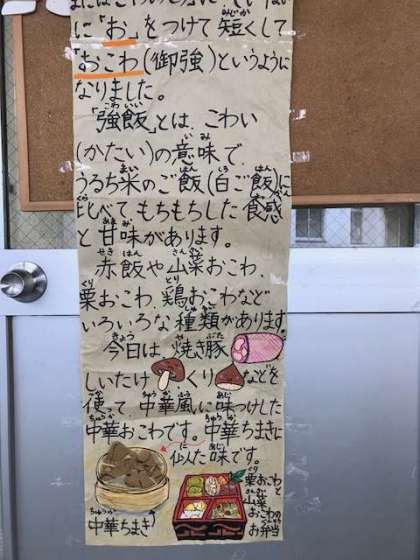 に「お」をつけて短くして
「おこわ(御強)というように
なりました。
「強飯」とは、こわい
(かたい)の意味で、
うるち米のご飯(白ご飯)に
比べてもちもちした食感
と甘味があります。
赤飯や山菜おこわ、
栗おこわ、鶏おこわなど
いろいろな種類があります。
今日は、焼き豚
しいたけ くりなどを
使って、中華風に味つけした
中華おこわです。中華ちまきに
似た味です。
中華ちまき
栗おこわと
山菜おこわの
お弁当